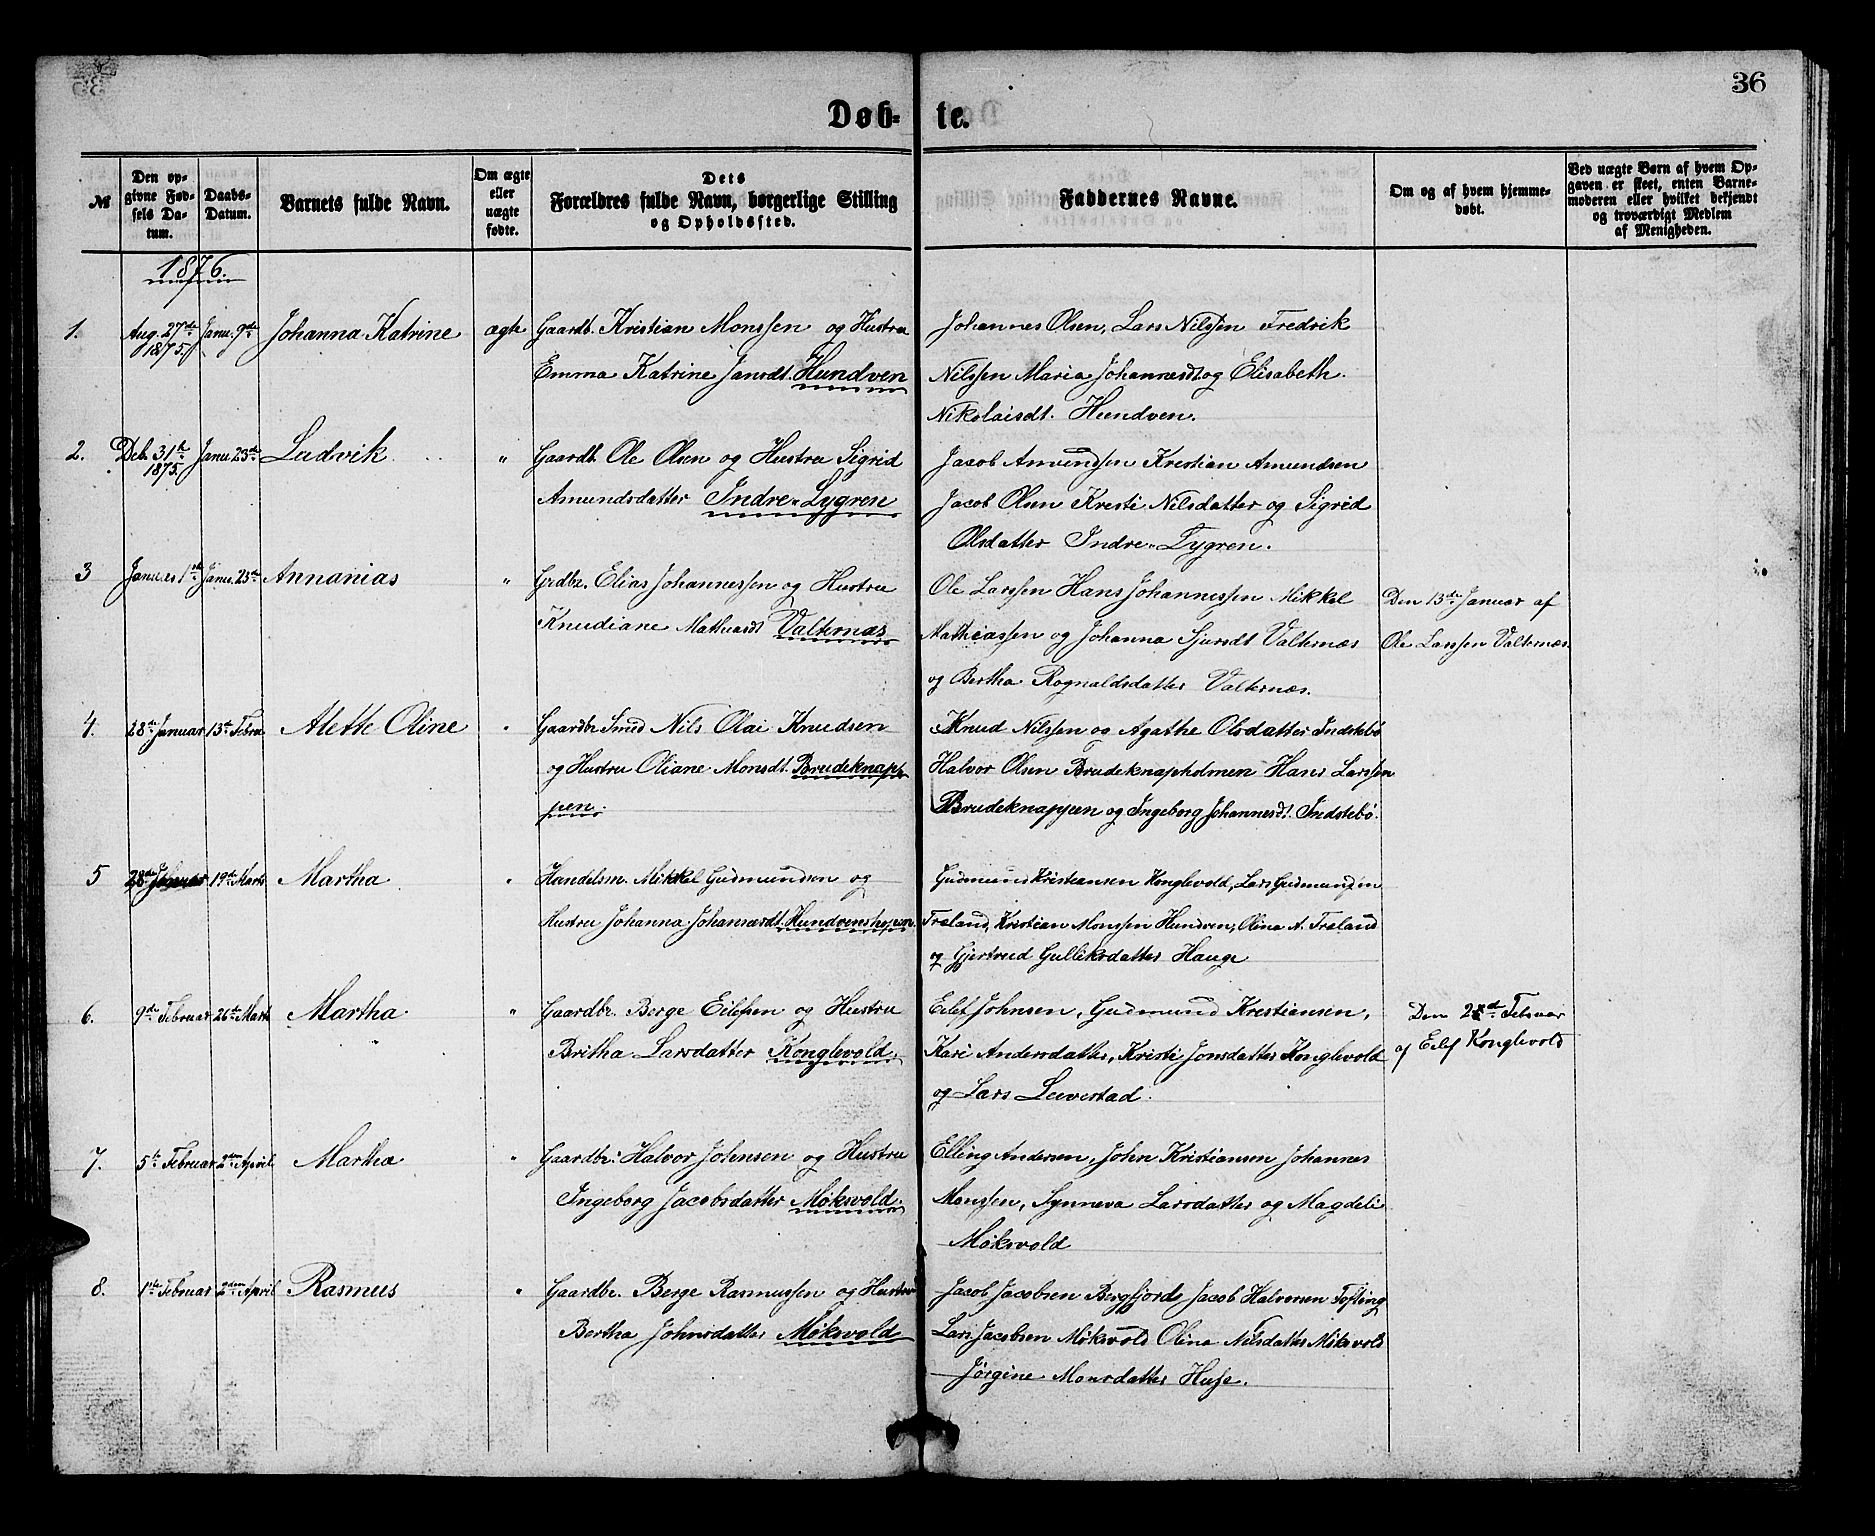 36
Døb-te.
№
Den op-
givne Fød-
sels Da-
tum.
Daabs-
Datum.
Barnets fulde Navn.
Om ægte
eller
uægte
fødte.
Dets
Forældres fulde Navn, borgerlige Stilling
og Opholdssted.
Faddernes Navne.
Om og af hvem hjemme-
døbt.
Ved uægte Børn af hvem Op-
gaven er skeet, enten Barne-
moderen eller hvilket bekjendt
og troværdigt Medlem
af Menigheden.
1876.
1.
Aug. 27de
1875.
Janu. 9de
Johanna Katrine
ægte
Gaardb. Kristian Monssen og Hustru
Emma Katrine Jansdt. Hundven
Johannes Olsen, Lars Nilssen Fredrik
Nilssen Maria Johannesdt og Elisabeth
Nikolaisdt. Hundven.
2.
Deb. 31te
1875.
Janu. 23de
Ludvik
"
Gaardb. Ole Olsen og Hustru Sigrid
Amundsdatter Indre-Lygren
Jacob Amundsen Kristian Amundsen
Jacob Olsen Kristi Nilsdatter og Sigrid
Olsdatter Indre-Lygren.
3
Januar 1ste
Janu. 23de
Annanias
"
Grdbr. Elias Johannessen og Hustru
Knudiane Mathiasdt Valternæs
Ole Larssen Hans Johannessen Mikkel
Mathiassen og Johanna Sjursdt Valternæs
og Bertha Rognaldsdatter Valternæs.
Den 13de Januar af
Ole Larssen Valternæs
4.
28de Januar
13de Febru
Alette Oline
"
Gaardbr Smed Nils Olai Knudsen
og Hustru Oliane Monsdt. Brudeknap-
pen.
Knud Nilssen og Agathe Olsdatter Indstebø
Halvor Olsen Brudeknapholmen Hans Larssen
Brudeknappen og Ingeborg Johannesdt. Indstebø.
5
28de Januar
19de Marts
Martha
"
Handelsm. Mikkel Gudmundsen og
Hustru Johanna Johannesdt. Hundvenshopen.
Gudmund Kristiansen Konglevold, Lars Gudmundsen
Træland, Kristian Monssen Hundven, Olina A. Træland
og Gjertrud Gulliksdatter Hauge
6.
9de Februar
26de Marts
Martha
"
Gaardbr. Berge Eilefsen og Hustru
Britha Larsdatter Konglevold.
Eilef Johnsen, Gudmund Kristiansen,
Kari Andersdatter, Kristi Jonsdatter Konglevold
og Lars Leivestad.
Februar
af Eilef Konglevold
7.
5te Februar
2den April
Martha
"
Gaardbr. Halvor Johnsen og Hustru
Ingeborg Jacobsdatter Møksvold.
Elling Andersen, John Kristiansen Johannes
Monssen, Synneva Larsdatter og Magdeli
Møksvold
8.
1ste Februar
2den April
Rasmus
"
Gaardbr. Berge Rasmussen og Hustru
Bertha Johnsdatter Møksvold
Jacob Jacobsen Bergfjord Jacob Halvorsen Tofting
Lars Jacobsen Møksvold Olina Nilsdatter Møksvold
Jørgine Monsdatter Huse.